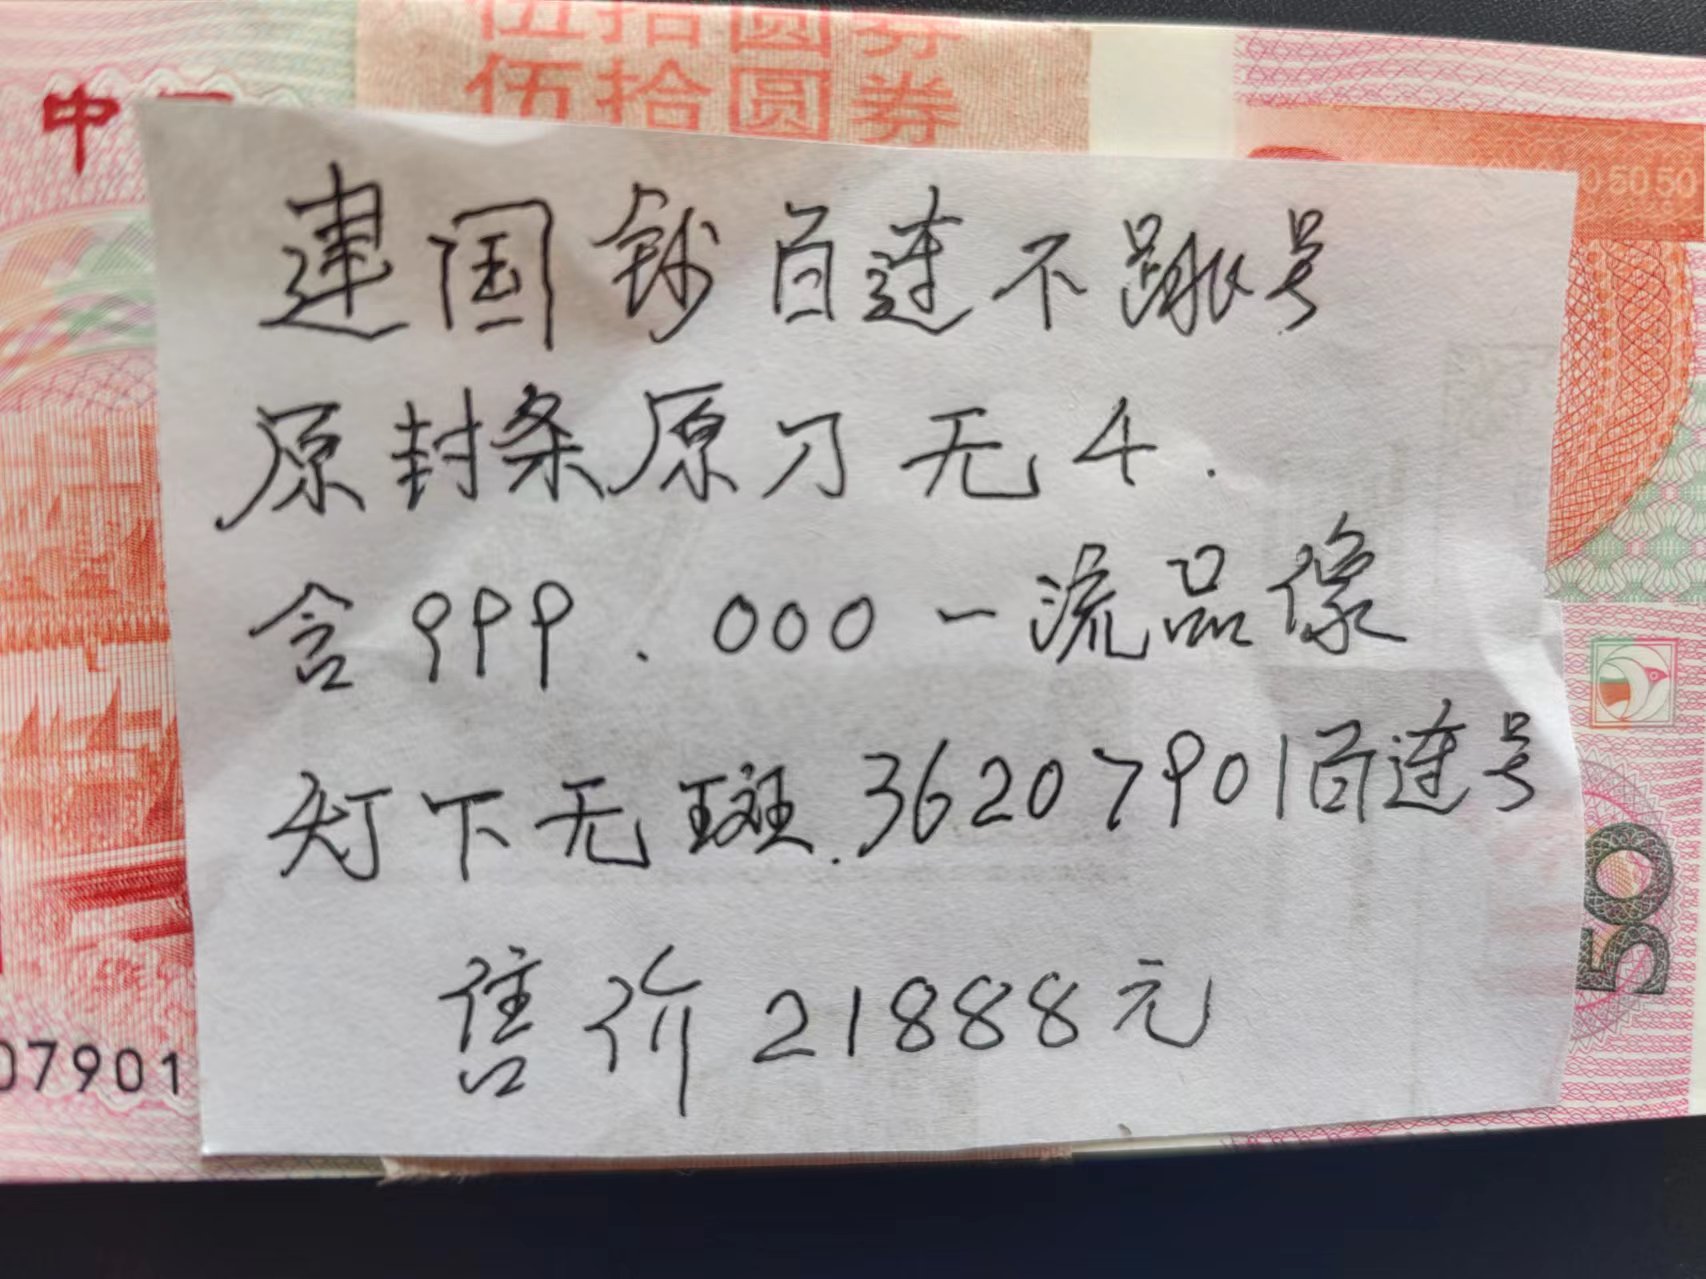 伍拾圆券
伍拾圆券
中
5050
建国钞百连不跳号
原封条原刀无4.
含999.000一流品像
灯下无斑.36207901百连号
售价21888元
07901
50